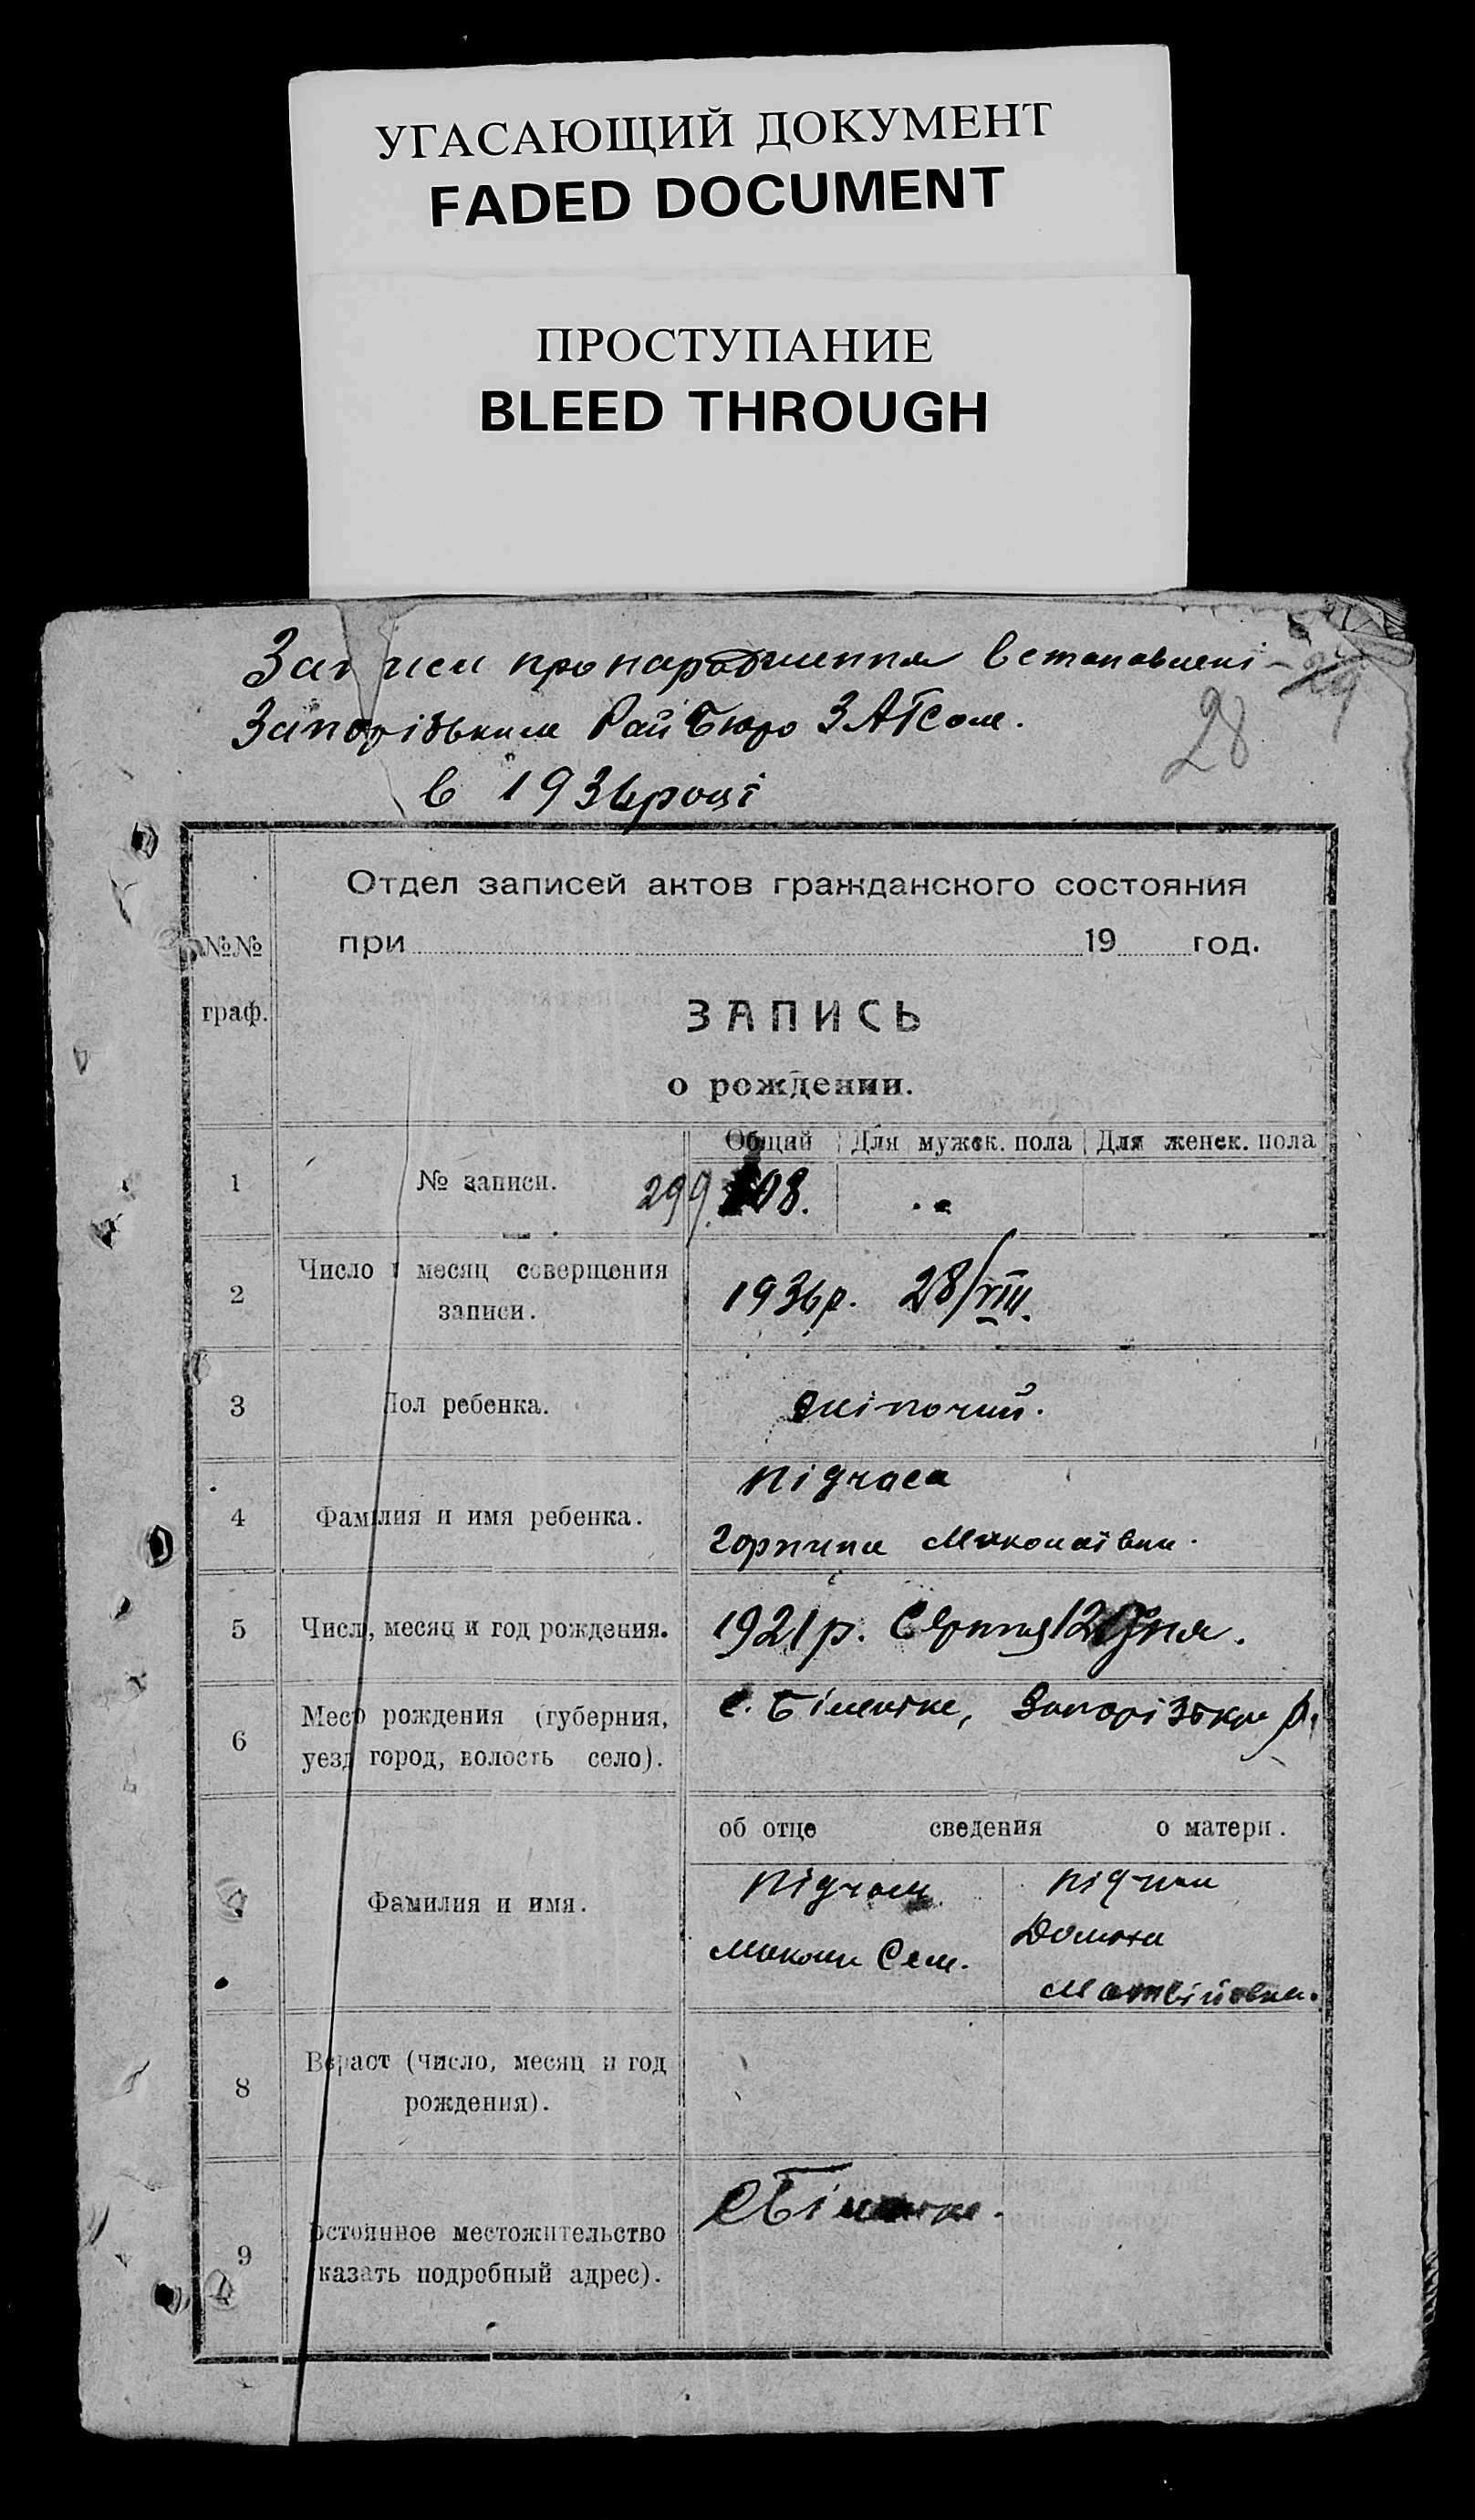 УГАСАЮЩИЙ ДОКУМЕНТ
FADED DOCUMENT
ПРОСТУПАНИЕ
BLEED THROUGH
Записи про народження встановлені
29
Запорізьким РайБюро ЗАГСом.
28
в 1936 році
Отдел записей актов гражданского состояния
№№ при 19 год.
граф.
ЗАПИСЬ
о рождении.
Общий Для мужск. пола Для женск. пола
1 № записи. 299. 08.
2 Число и месяц совершения
записи.
1936р. 28/VIII.
3 Пол ребенка. жіночий.
4 Фамилия и имя ребенка.
Підчаса
Горпина Миколаївна.
5 Число, месяц и год рождения. 1921р. Серпня 12 дня.
6 Место рождения (губерния,
уезд город, волость село).
с. Біленьке, Запорізьк. р.
об отце сведения о матери.
Фамилия и имя.
Микола Сем.
Домаха
Матвіївна.
8 Возраст (число, месяц и год
рождения).
9 Постоянное местожительство
указать подробный адрес).
с Біленьке.